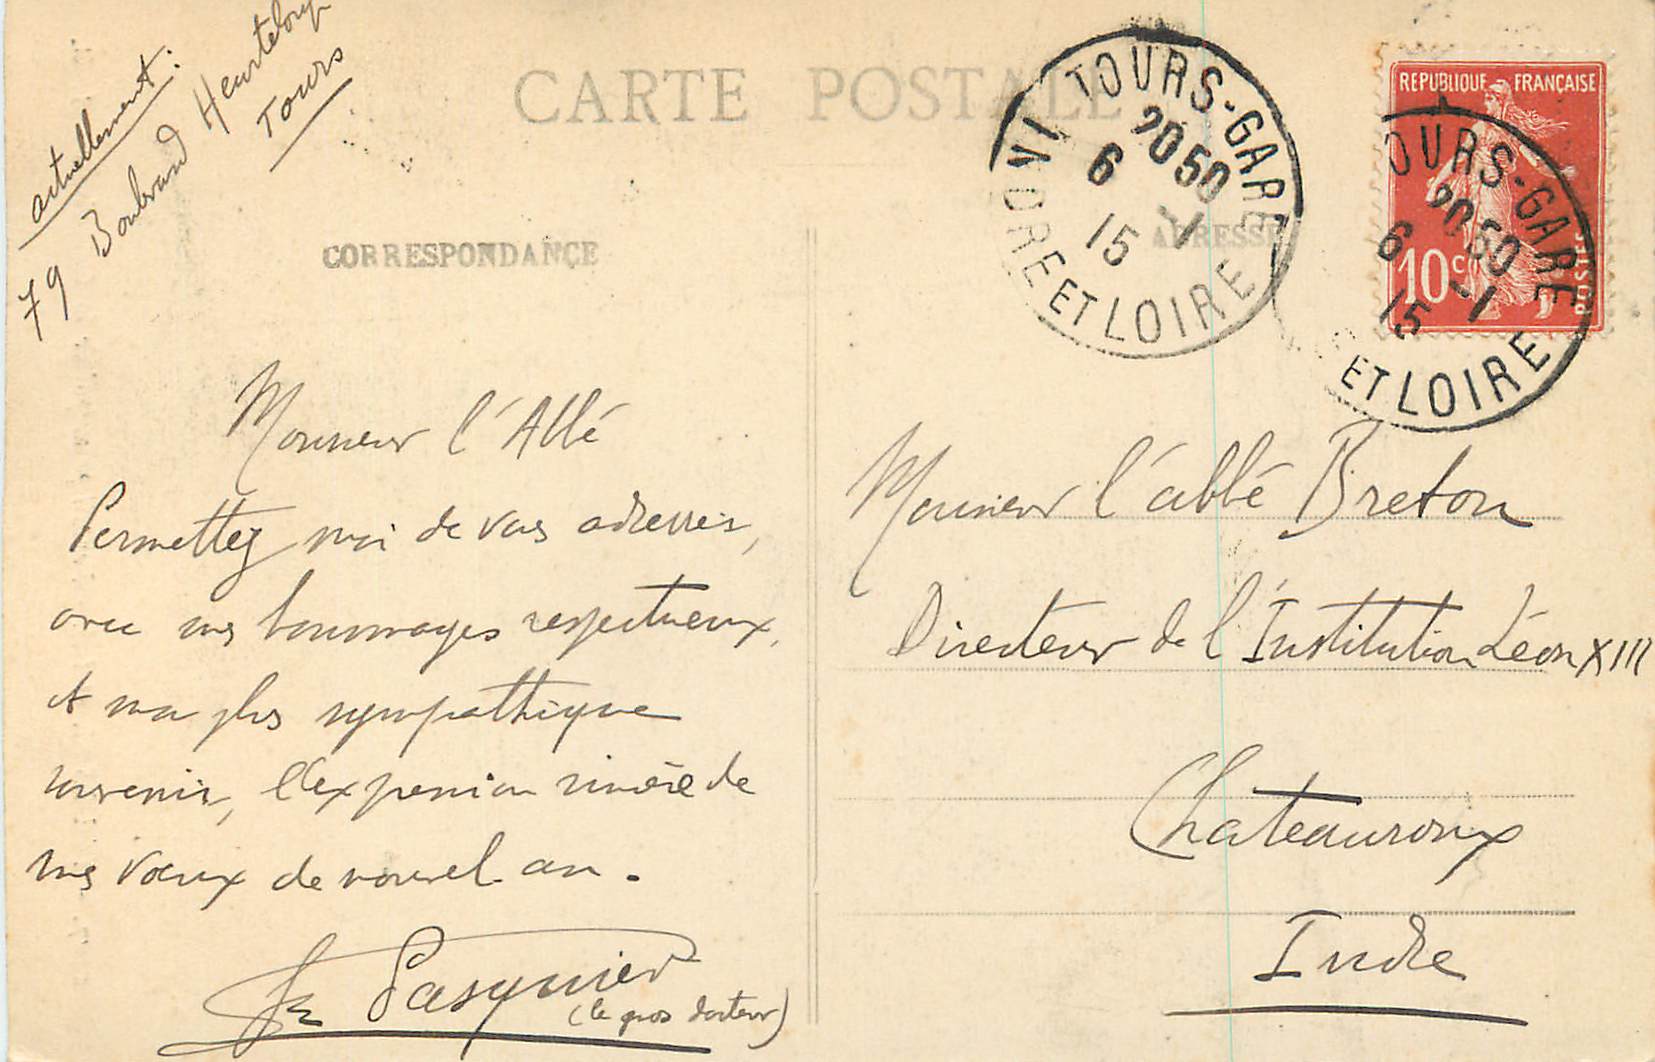 actuellement:
79 Boulevard Heurteloup
Tours
CARTE POSTALE
CORRESPONDANCE
ADRESSE
TOURS-GARE
20 50
6 -1
15
INDRE ET LOIRE
REPUBLIQUE FRANÇAISE
POSTES
10c
OURS-GARE
20 50
6 -1
15
ET LOIRE
Monsieur l'Abbé
Permettez moi de vous adresser,
avec mes hommages respectueux,
et mon plus sympathique
souvenir, l'expression sincère de
mes vœux de nouvel an.
Pasquier
(le gros docteur)
Monsieur l'abbé Breton
Directeur de l'Institution Léon XIII
Chateauroux
Indre